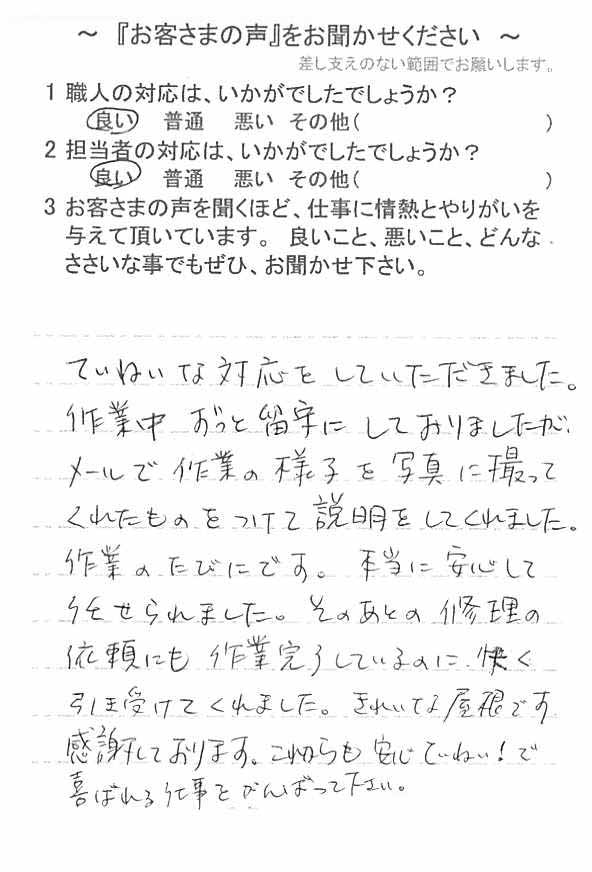 ～ 『お客さまの声』をお聞かせください ～
差し支えのない範囲でお願いします。
1 職人の対応は、いかがでしたでしょうか？
良い 普通 悪い その他( )
2 担当者の対応は、いかがでしたでしょうか？
良い 普通 悪い その他( )
3 お客さまの声を聞くほど、仕事に情熱とやりがいを
与えて頂いています。 良いこと、悪いこと、どんな
ささいな事でもぜひ、お聞かせ下さい。
ていねいな対応をしていただきました。
作業中 ずっと留守にしておりましたが、
メールで作業の様子を写真に撮って
くれたものをつけて説明をしてくれました。
作業のたびにです。本当に安心して
任せられました。そのあとの修理の
依頼にも作業完了しているのに、快く
引き受けてくれました。きれいな屋根です
感謝しております。これからも安心ていねい！で
喜ばれる仕事をがんばって下さい。